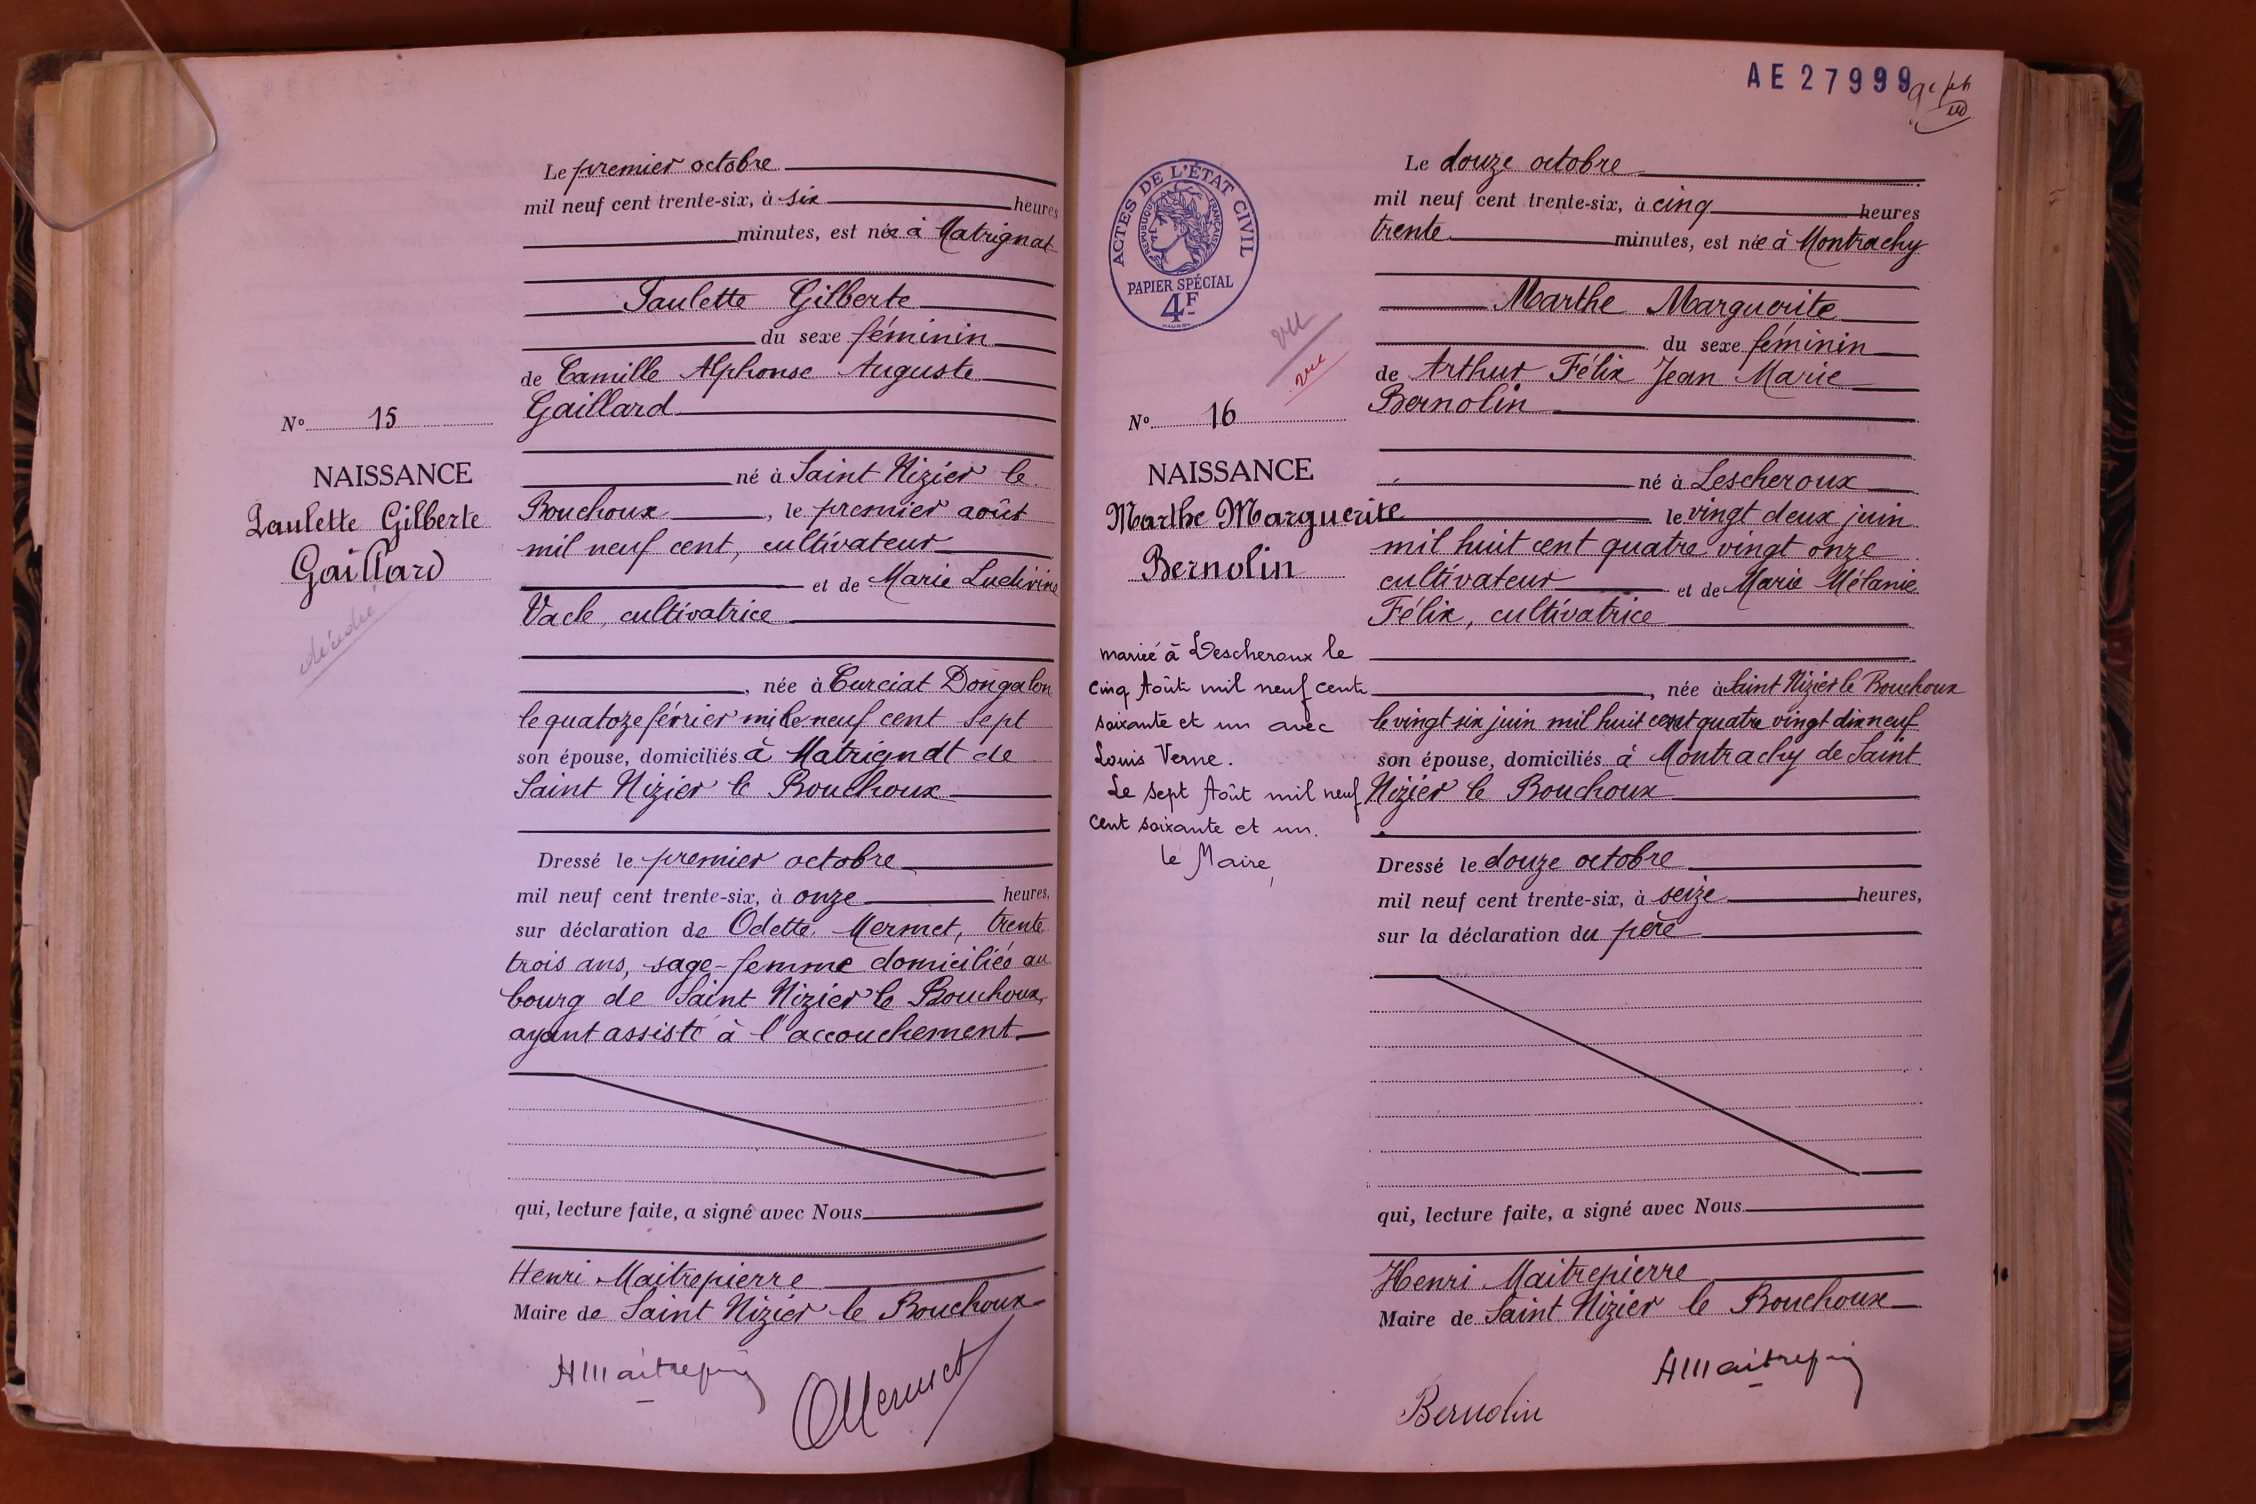 Le premier octobre
mil neuf cent trente-six, à six heures
minutes, est née à Matrignat
Paulette Gilberte
du sexe féminin
de Camille Alphonse Auguste
Gaillard
né à Saint Nizier le
Bouchoux, le premier août
mil neuf cent, cultivateur
et de Marie Ludivine
Vacle, cultivatrice
, née à Curciat Dongalon
le quatoze février mil neuf cent sept
son épouse, domiciliés à Matrignat de
Saint Nizier le Bouchoux
Dressé le premier octobre
mil neuf cent trente-six, à onze heures,
sur déclaration de Odette Mermet, trente
trois ans, sage-femme domiciliée au
bourg de Saint Nizier le Bouchoux,
ayant assisté à l'accouchement
qui, lecture faite, a signé avec Nous
Henri Maitrepierre
Maire de Saint Nizier le Bouchoux
No 15
NAISSANCE
Paulette Gilberte
Gaillard
OMermet
AE 27999
ACTES DE L'ÉTAT CIVIL
RÉPUBLIQUE FRANÇAISE
PAPIER SPÉCIAL
4F
vu
vu
No 16
NAISSANCE
Marthe Marguerite
Bernolin
mariée à Lescheroux le
cinq Août mil neuf cent
soixante et un avec
Louis Verne.
Le sept Août mil neuf
cent soixante et un.
le Maire,
Le douze octobre
mil neuf cent trente-six, à cinq heures
trente minutes, est née à Montrachy
Marthe Marguerite
du sexe féminin
de Arthur Félix Jean Marie
Bernolin
né à Lescheroux
le vingt deux juin
mil huit cent quatre vingt onze
cultivateur et de Marie Mélanie
Félix, cultivatrice
, née à Saint Nizier le Bouchoux
le vingt six juin mil huit cent quatre vingt dix neuf
son épouse, domiciliés à Montrachy de Saint
Nizier le Bouchoux
Dressé le douze octobre
mil neuf cent trente-six, à seize heures,
sur la déclaration du père
qui, lecture faite, a signé avec Nous
Henri Maitrepierre
Maire de Saint Nizier le Bouchoux
Bernolin